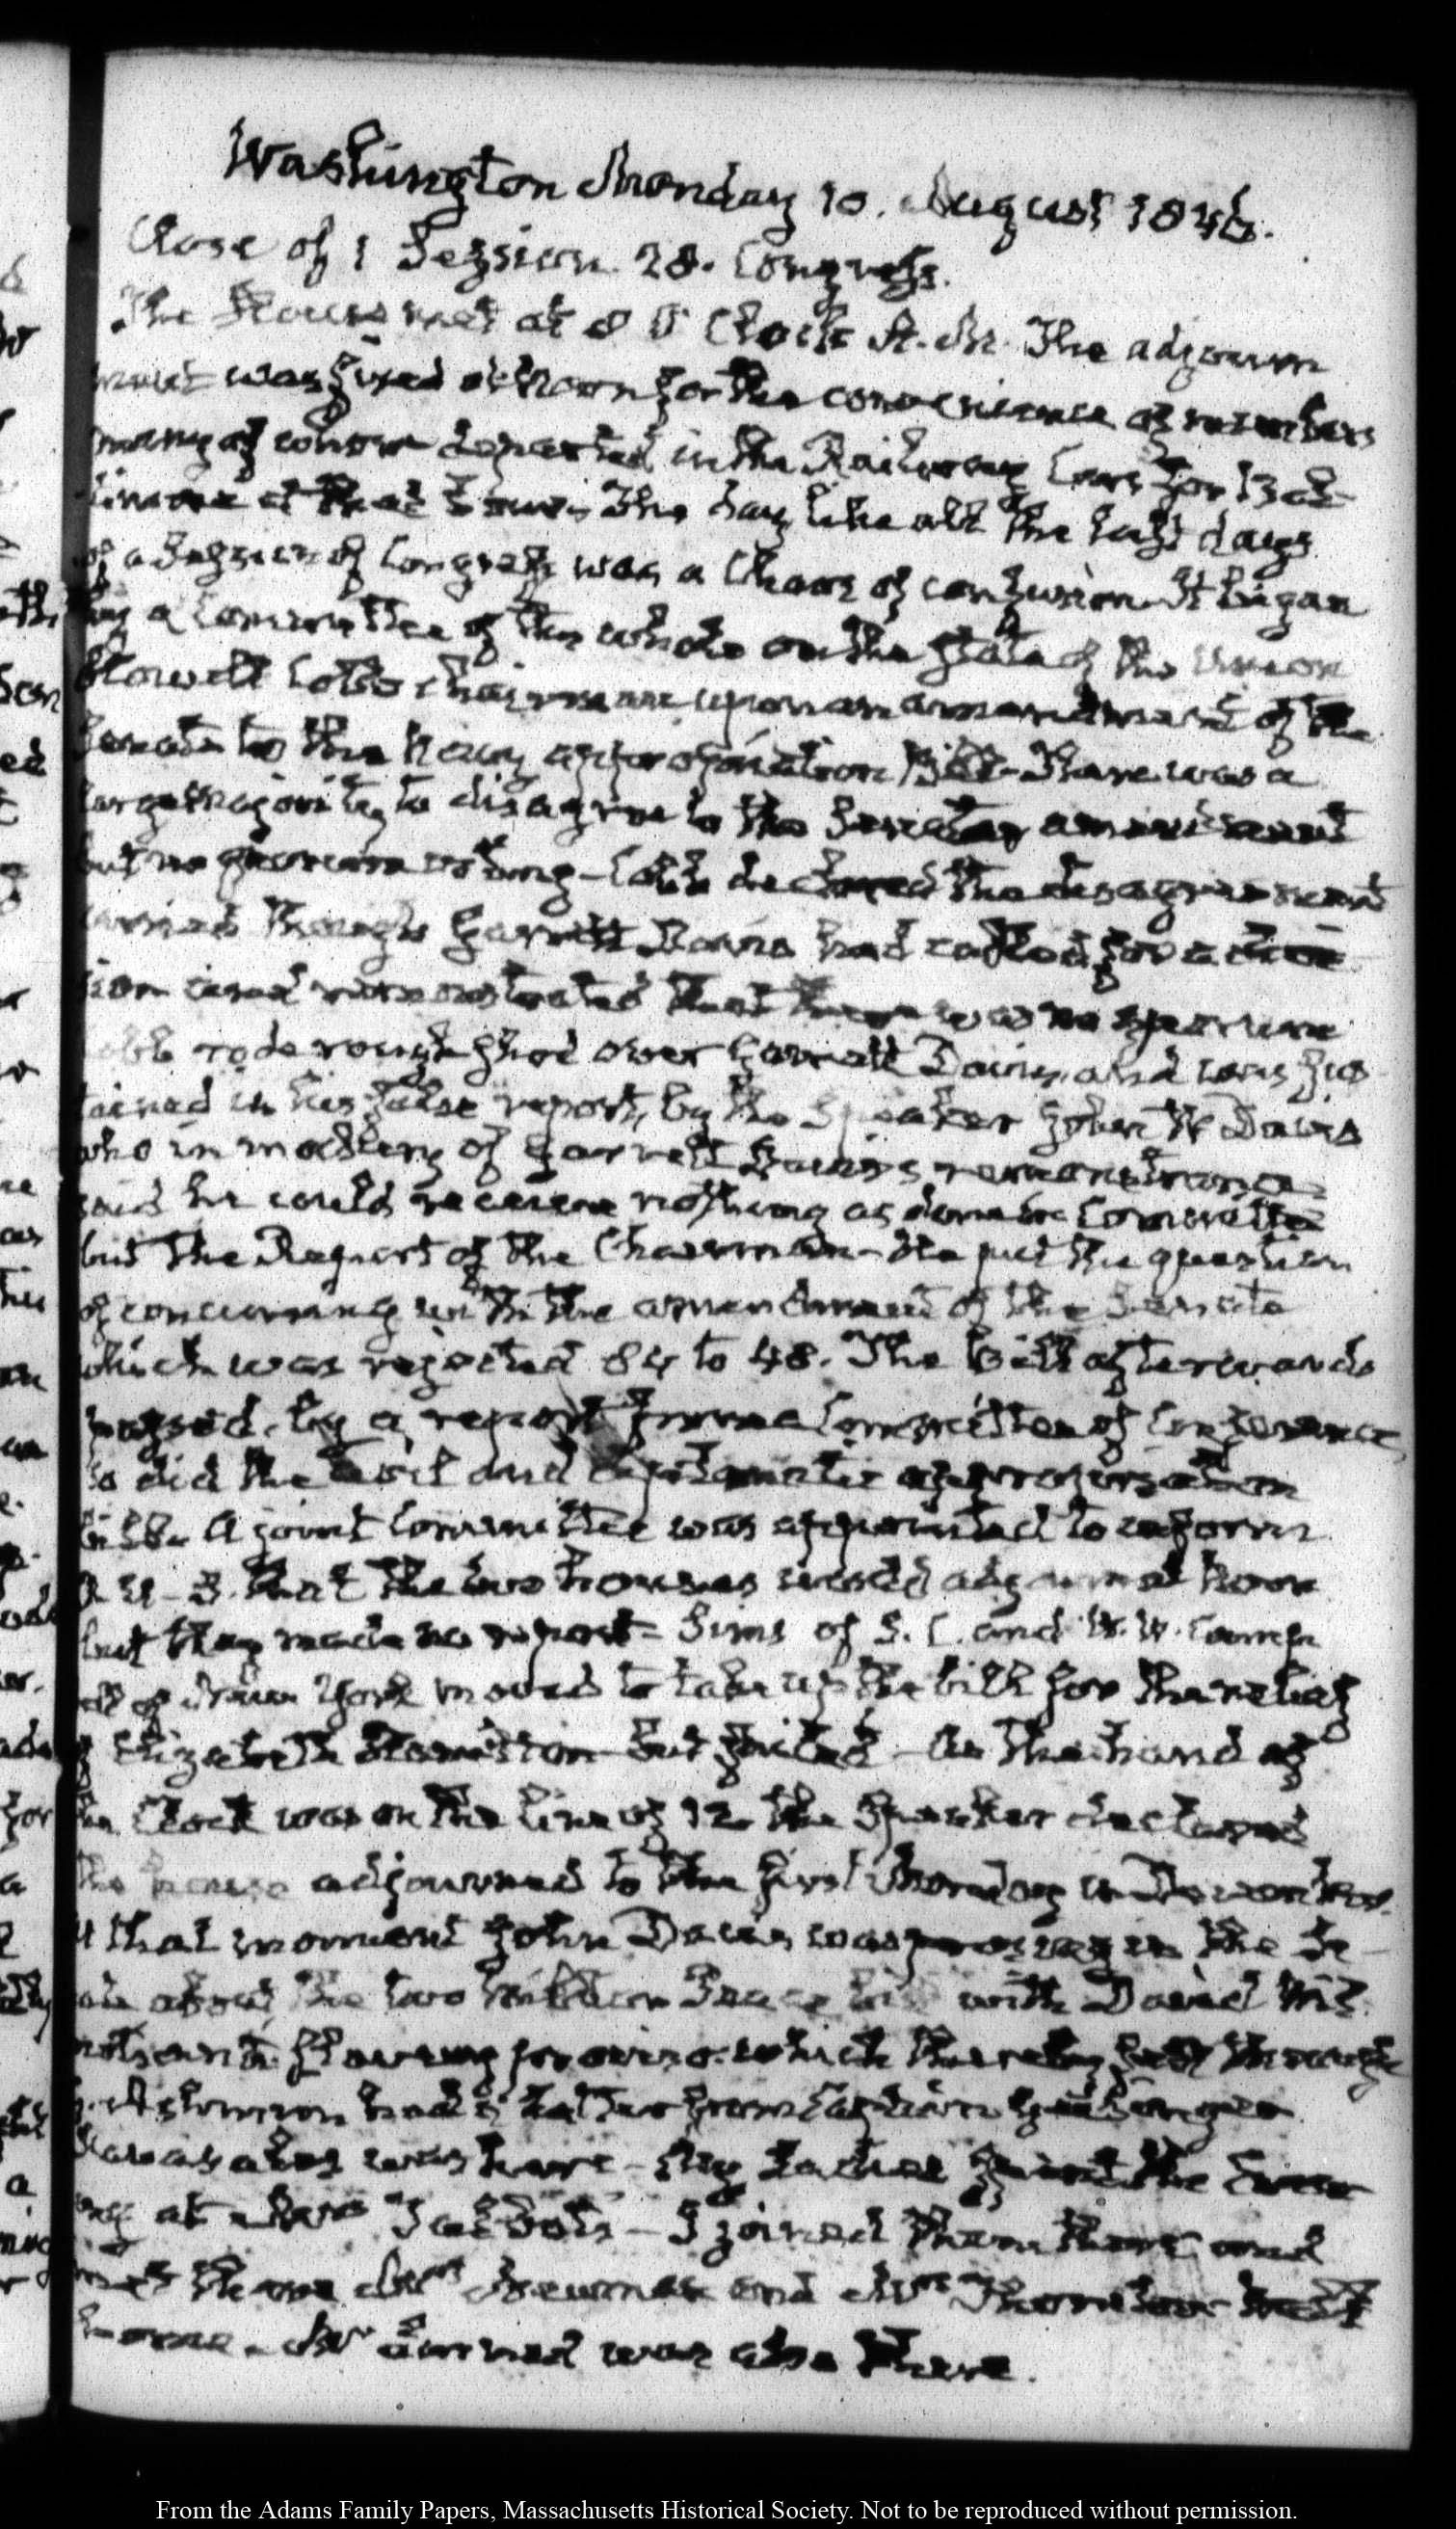 Washington Monday 10. August 1846.
Close of 1 Session. 28. Congress.
The House met at 8 O'Clock A.M. The adjourn
ment was fixed at Noon for the convenience of members
many of whom departed in the Railway Cars for Bal-
timore at that hour. The day like all the last days
of a Session of Congress was a Chaos of confusion. It began
by a Committee of the whole on the state of the Union
Howell Cobb chairman upon an amendment of the
Senate to the Navy appropriation Bill. There was a
large majority to disagree to the Senate's amendment
but no quorum voting – Cobb declared the disagreement
carried though Garrett Davis had called for a divi
sion and remonstrated that there was no quorum
Cobb rode rough shod over Garrett Davis, and was sus
tained in his false report, by the Speaker John W Davis
who in mockery of Garrett Davis's remonstrance
said he could receive nothing as done in Committee
but the Report of the Chairman – He put the question
of concurring with the amendment of the Senate
which was rejected 84 to 48. The Bill afterwards
passed, by a report from a Committee of Conference
so did the Civil and diplomatic appropriation
bill. A joint Committee was appointed to inform
P. U-S. that the two houses would adjourn at Noon
but they made no report – Sims of S. C. and W. W. Camp
bell of New York moved to take up the bill for the relief
of Elizabeth Hamilton but failed – As the hand of
the Clock was on the line of 12 the Speaker declared
the house adjourned to the first Monday in December.
At that moment John Davis was prosing in the Se-
nate about the two Million Two bill with David Wil
mot's proviso which thereby fell through
G. Ashmun had a letter from
was here – My ladies spent the Even
ing at Mrs Talbot's – I joined them there and
met there Mrs and Mrs Thornton
home. Mr was also there.